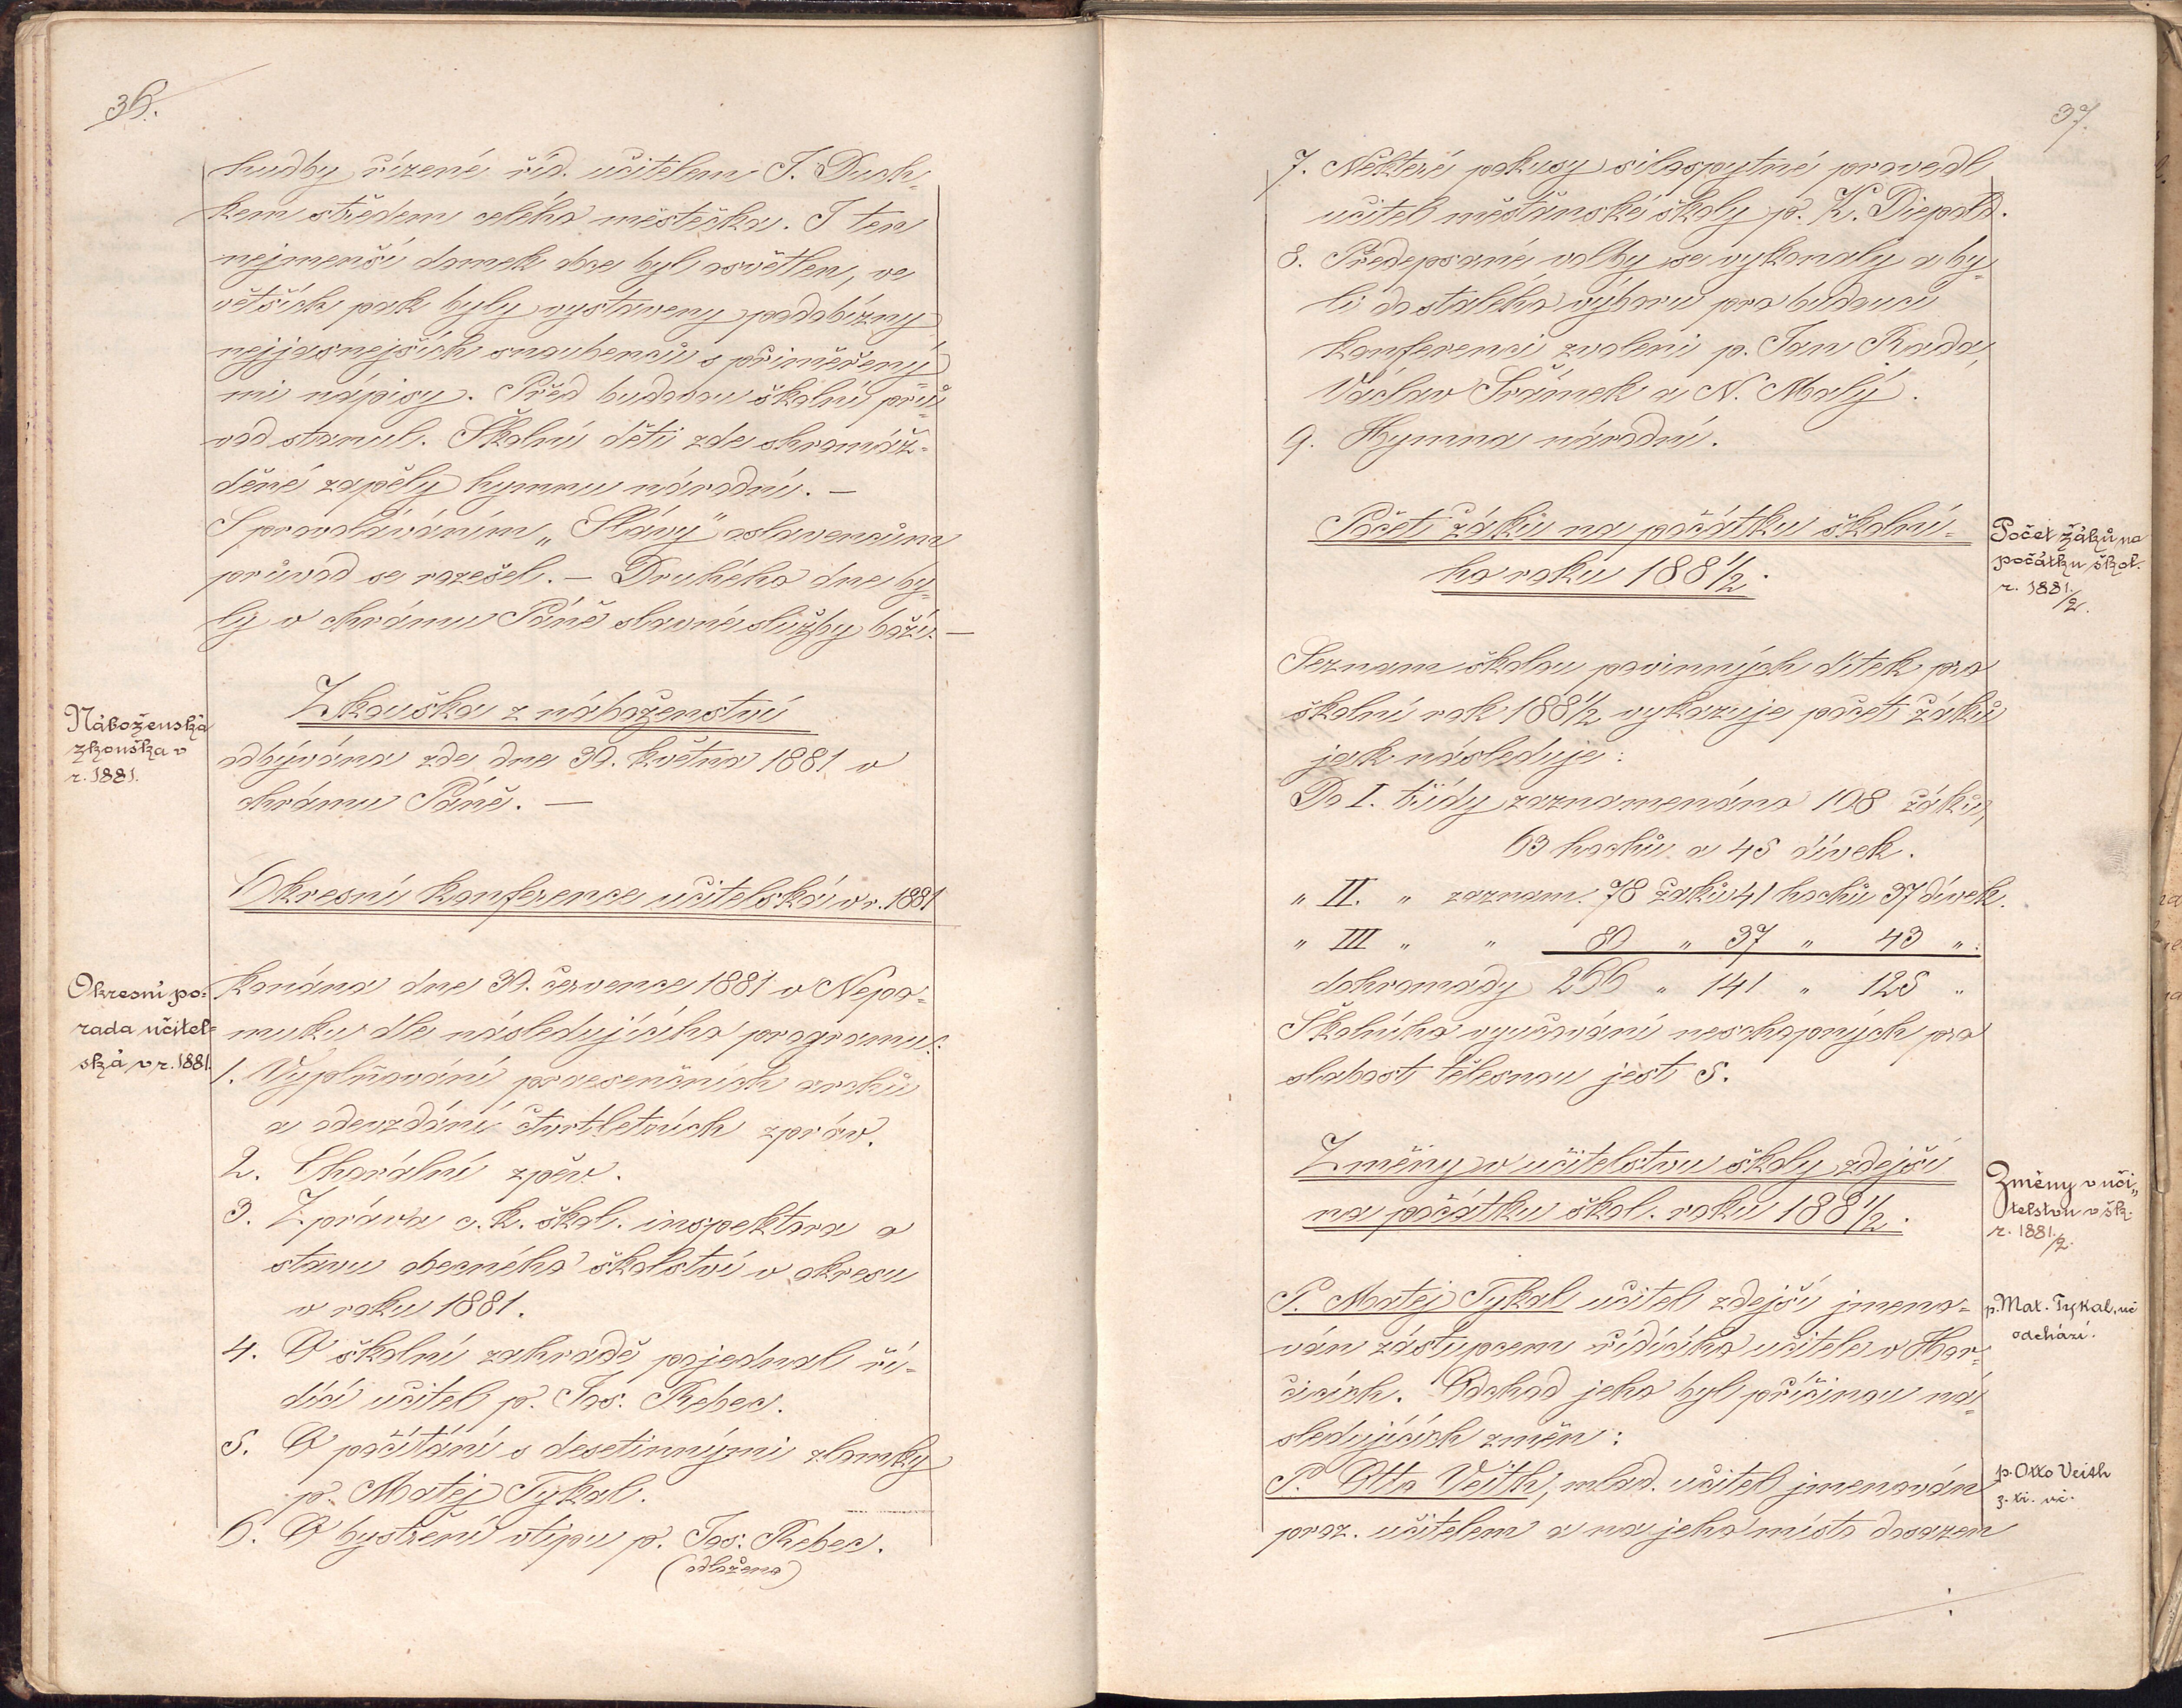 36.
hudby řízené říd. učitelem J. Duch-
kem středem celého městečka. I ten
nejmenší domek obce byl osvětlen, ve
větších pak byly vystaveny podobizny
nejjasnějších snoubenců s přiměřený-
mi nápisy. Před budovou školní prů-
vod stanul. Školní děti zde shromáž-
děné zapěly hymnu národní. —
S provoláváním „Slávy" oslavencům
průvod se rozešel. — Druhého dne by-
ly v chrámu Páně slavné služby boží. —
Zkouška z náboženství
Náboženská
zkouška v
r. 1881.
odbývána zde dne 30. května 1881 v
chrámu Páně. —
Okresní konference učitelská v r. 1881
Okresní po-
rada učitel-
ská v r. 1881.
konána dne 30. července 1881 v Nepo-
muku dle následujícího programu:
1. Vyplňování praesenčních archů
a odevzdání čtvrtletních zpráv.
2. Chorální zpěv.
3. Zpráva c. k. škol. inspektora o
stavu obecného školství v okresu
v roku 1881.
4. O školní zahradě pojednal ří-
dící učitel p. Jos. Rebec.
5. O počítání s desetinnými zlomky
p. Matěj Tykal.
6. O bystření vtipu p. Jos. Rebec.
(odloženo)
37.
7. Některé pokusy silozpytné provedl
učitel měšťanské školy p. K. Diepold.
8. Předepsané volby se vykonaly a by-
li do stálého výboru pro budoucí
konferenci zvoleni p. Jan Rada,
Václav Šrámek a N. Malý.
9. Hymna národní.
Počet žáků na počátku školní-
ho roku 1881/2.
Počet žáků na
počátku škol.
r. 1881/2.
Seznam školou povinných dítek pro
školní rok 1881/2 vykazuje počet žáků
jak následuje:
Do I. třídy zaznamenáno 108 žáků,
63 hochů a 45 dívek.
„ II. „ zaznam. 78 žáků 41 hochů 37 dívek.
„ III „ „ 80 „ 37 „ 43 „.
dohromady 266 „ 141 „ 125 „
Školního vyučování neschopných pro
slabost tělesnou jest 5.
Změny v učitelstvu školy zdejší
na počátku škol. roku 1881/2.
Změny v uči-
telstvu v šk.
r. 1881/2.
P. Matěj Tykal učitel zdejší jmeno-
ván zástupcem řídícího učitele v Hor-
čicích. Odchod jeho byl příčinou ná-
sledujících změn:
p. Mat. Tykal, uč
odchází.
P. Otto Veith, mlad. učitel jmenován
proz. učitelem a na jeho místo dosazen
p. Otto Veith
z. tř. uč.